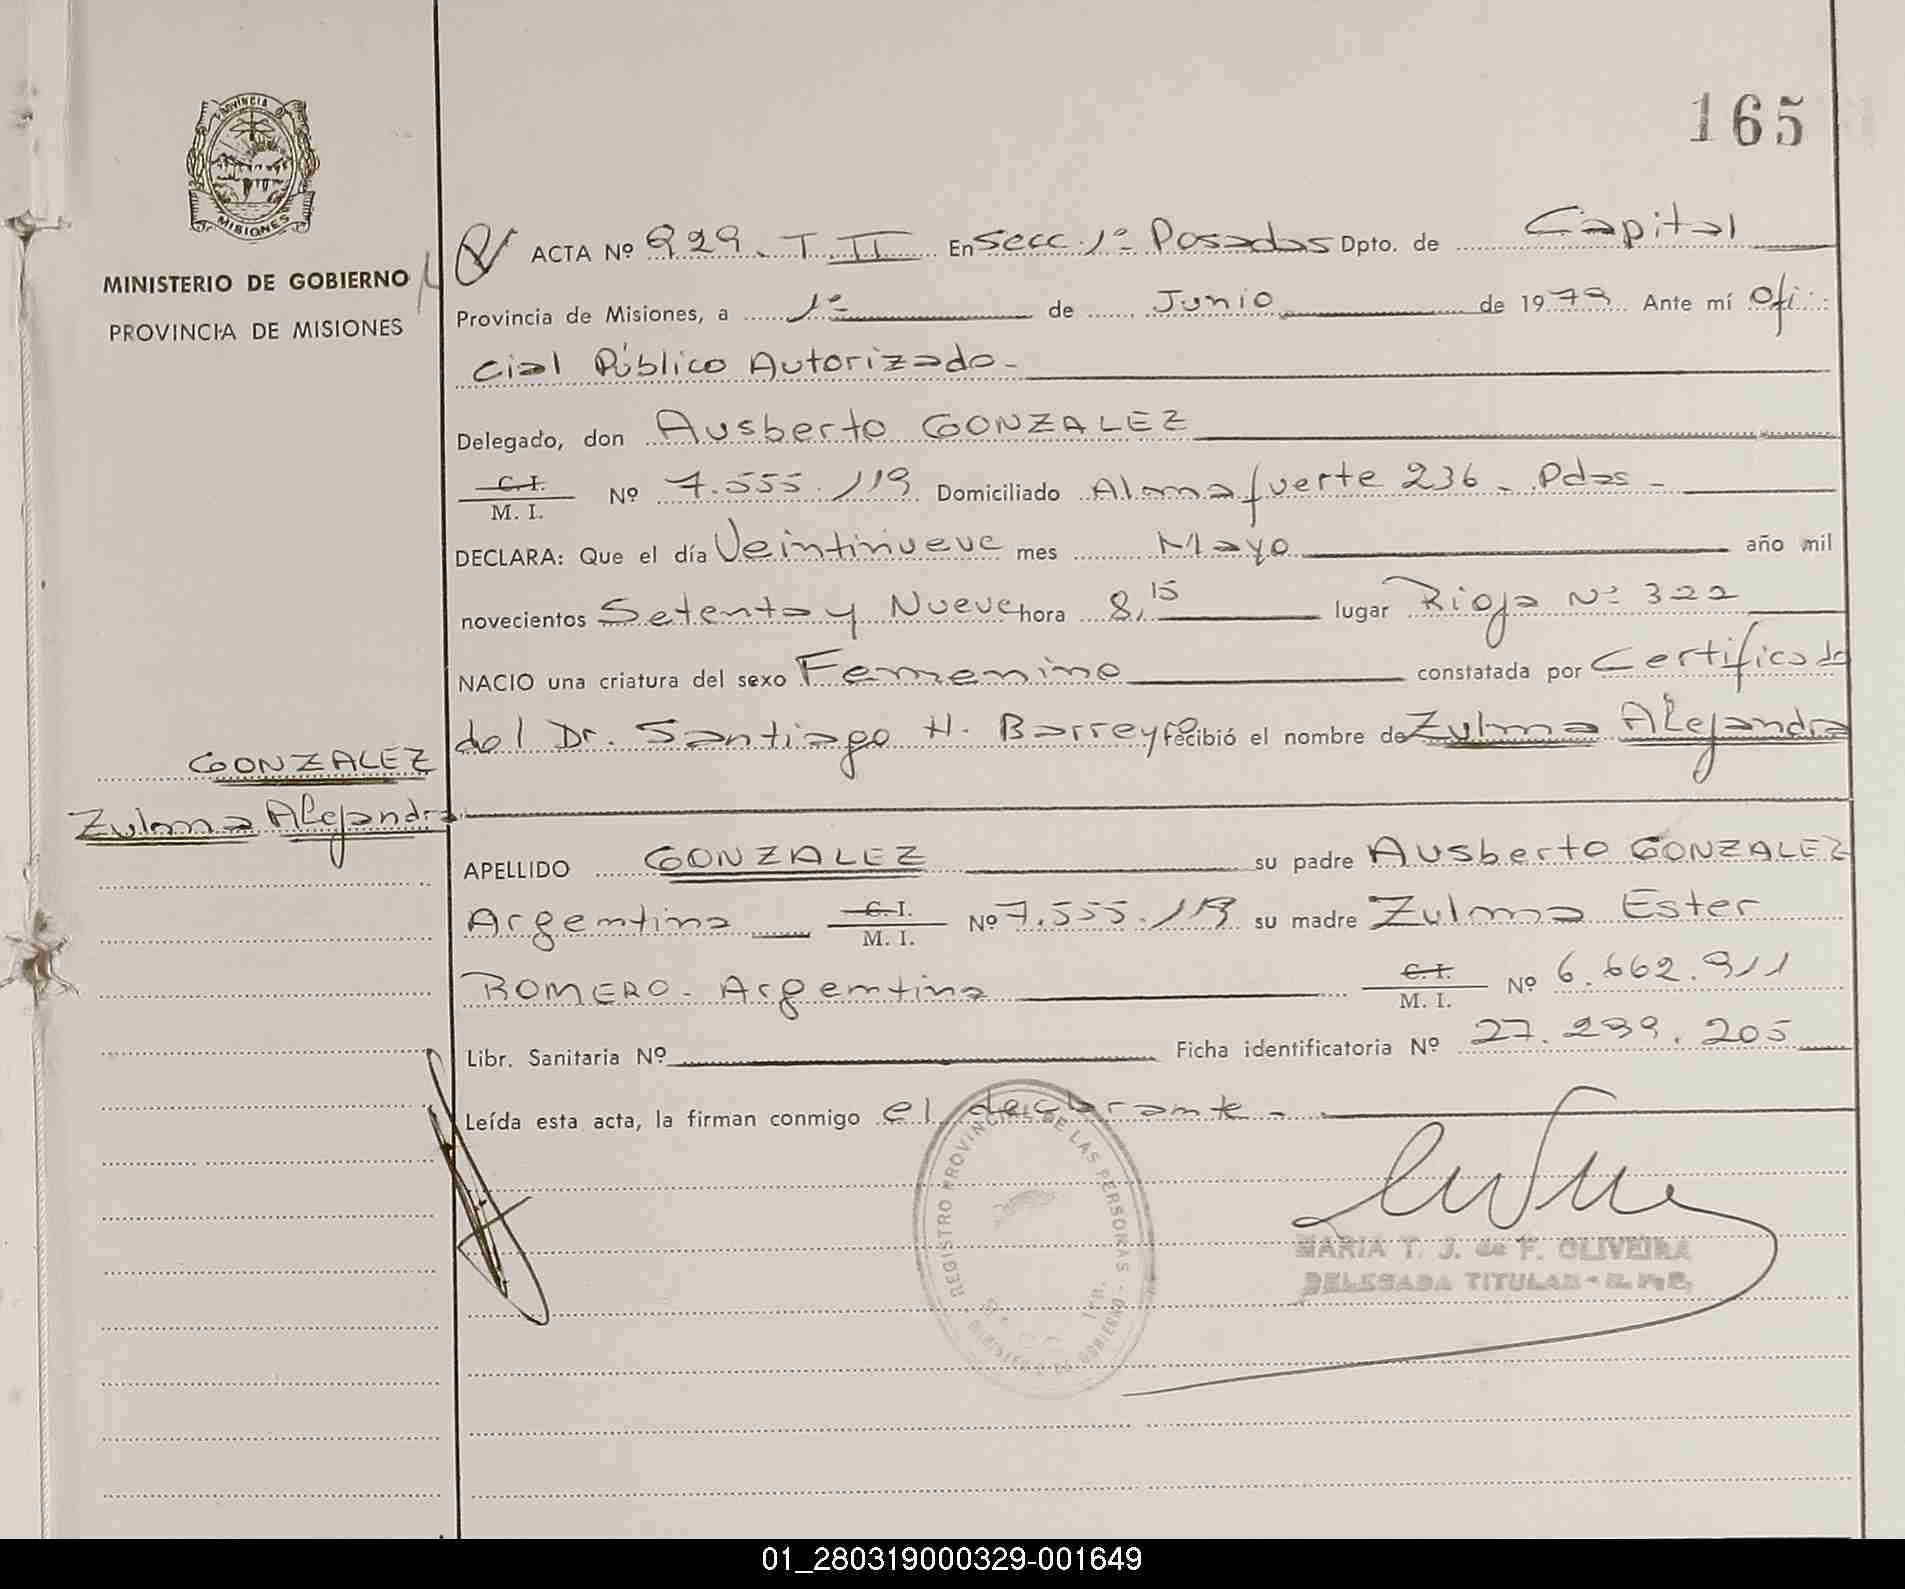 165
PROVINCIA DE
MISIONES
MINISTERIO DE GOBIERNO
PROVINCIA DE MISIONES
ACTA Nº 929. T II En Secc. 1º Posadas Dpto. de Capital
Provincia de Misiones, a 1º de Junio de 1979 Ante mí Ofi
cial Público Autorizado.
Delegado, don Ausberto GONZALEZ
C. I.
M. I. Nº 7.555.119 Domiciliado Almafuerte 236 - Pdas -
DECLARA: Que el día Veintinueve mes Mayo año mil
novecientos Setenta y Nueve hora 8,15 lugar Rioja Nº 322
NACIO una criatura del sexo Femenino constatada por Certificado
del Dr. Santiago H. Barreyro recibió el nombre de Zulma Alejandra
GONZALEZ
Zulma Alejandra
APELLIDO GONZALEZ su padre Ausberto GONZALEZ
Argentina C. I. M. I. Nº 7.555.119 su madre Zulma Ester
ROMERO - Argentina C. I. M. I. Nº 6.662.911
Libr. Sanitaria Nº Ficha identificatoria Nº 27.299.205
Leída esta acta, la firman conmigo el declarante -
REGISTRO PROVINCIAL DE LAS PERSONAS - MINISTERIO DE GOBIERNO
MARIA T. J. de F. OLIVEIRA
DELEGADA TITULAR - R. P. P.
01_280319000329-001649